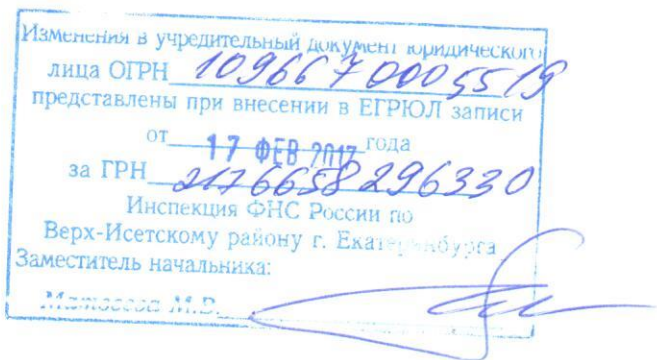 Изменения в учредительный документ юридического
лица ОГРН 1096670005519
представлены при внесении в ЕГРЮЛ записи
от 17 ФЕВ 2017 года
за ГРН 2176658296330
Инспекция ФНС России по
Верх-Исетскому району г. Екатеринбурга
Заместитель начальника:
М.В.